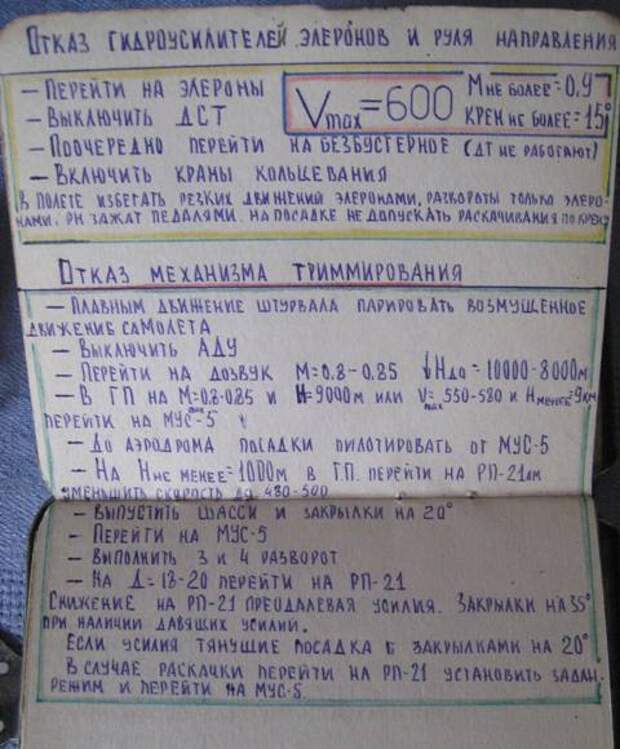 Отказ гидроусилителей элеронов и руля направления
– Перейти на элероны
Vmax=600
М не более=0.9
крен не более=15°
– Выключить ДСТ
– Поочередно перейти на безбустерное (ДТ не работают)
– Включить краны кольцевания
В полете избегать резких движений элеронами, развороты только элеро-
нами. РН зажат педалями. На посадке не допускать раскачивания по крену
Отказ механизма триммирования
– Плавным движение штурвала парировать возмущенное
движение самолета
– Выключить АДУ
– Перейти на дозвук М=0.8-0.85 ↓Ндо=10000-8000м
– В ГП на М=0.8-0.85 и Н=9000м или Vmax=550-580 и Нменее=9км
перейти на МУС-5
– До аэродрома посадки пилотировать от МУС-5
– На Нне менее=1000м в ГП. перейти на РП-21
уменьшить скорость до 480-500
– Выпустить шасси и закрылки на 20°
– Перейти на МУС-5
– Выполнить 3 и 4 разворот
– На Д=18-20 перейти на РП-21
Снижение на РП-21 преодалевая усилия. Закрылки на 35°
при наличии давящих усилий.
Если усилия тянущие посадка с закрылками на 20°
В случае раскачки перейти на РП-21 установить задан.
режим и перейти на МУС-5